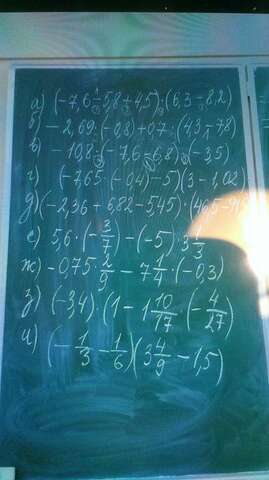 а) (-7,6 + 5,8 + 4,5) · (6,3 - 8,2)
б) - 2,69 · (-0,8) + 0,7 · (4,3 - 7,8)
в) - 10,8 - (-7,6 - 6,8) · (-3,5)
г) (-7,65 · (-0,4) - 5)(3 - 1,02)
д) (-2,36 + 6,82 - 5,45) · (4,65 -
е) 5,6 · (- 3/7) - (-5) · 3 1/3
ж) - 0,75 · 2/9 - 7 1/4 · (-0,3)
з) (-3,4) · (1 - 1 10/17 · (- 4/27)
и) (- 1/3 - 1/6)(3 4/9 - 1,5)